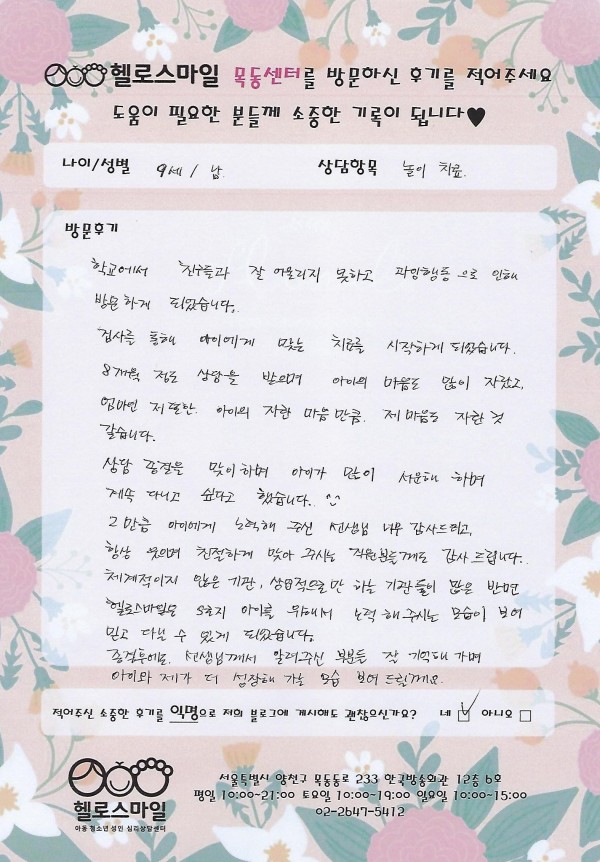 헬로스마일 목동센터를 방문하신 후기를 적어주세요
도움이 필요한 분들께 소중한 기록이 됩니다♥
나이/성별 9세 / 남. 상담항목 놀이 치료.
방문후기
학교에서 친구들과 잘 어울리지 못하고 과잉행동으로 인해
방문하게 되었습니다.
검사를 통해 아이에게 맞는 치료를 시작하게 되었습니다.
8개월 정도 상담을 받으며 아이의 마음도 많이 자랐고,
엄마인 저 또한. 아이의 자란 마음 만큼. 제 마음도 자란 것
같습니다.
상담 종결을 맞이하며 아이가 많이 서운해 하며
계속 다니고 싶다고 했습니다.
그만큼 아이에게 노력해 주신 선생님 너무 감사드리고,
항상 웃으며 친절하게 맞아 주시는 직원분들께도 감사 드립니다.
체계적이지 않은 기관, 상업적으로만 하는 기관들이 많은 반면
헬로스마일은 오로지 아이를 위해서 노력해 주시는 모습이 보여
믿고 다닐 수 있게 되었습니다.
종결후에도. 선생님께서 알려주신 부분들 잘 기억해 가며
아이와 제가 더 성장해 가는 모습 보여 드릴께요.
적어주신 소중한 후기를 익명으로 저희 블로그에 게시해도 괜찮으신가요? 네 ☑ 아니오 □
헬로스마일
아동 청소년 성인 심리상담센터
서울특별시 양천구 목동동로 233 한국방송회관 12층 6호
평일 10:00~21:00 토요일 10:00~19:00 일요일 10:00~15:00
02-2647-5412